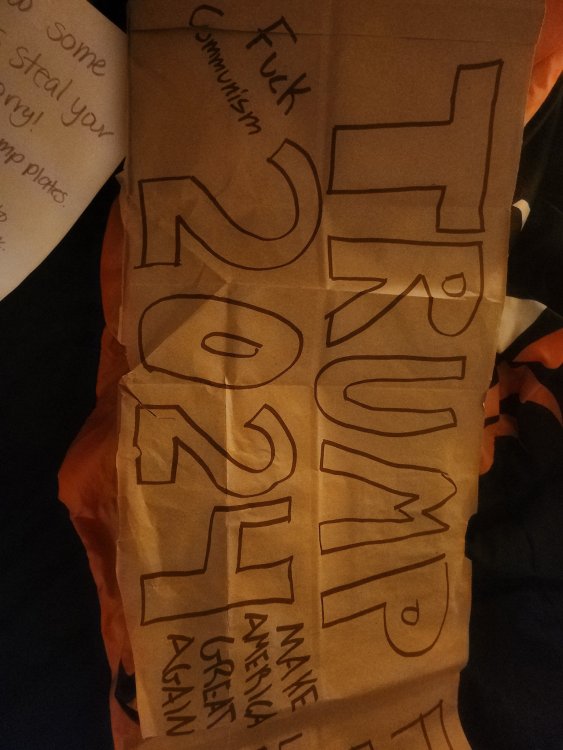 oo some
steal your
orry!
mp plates.
Fuck
Communism
TRUMP
2024
MAKE
AMERICA
GREAT
AGAIN